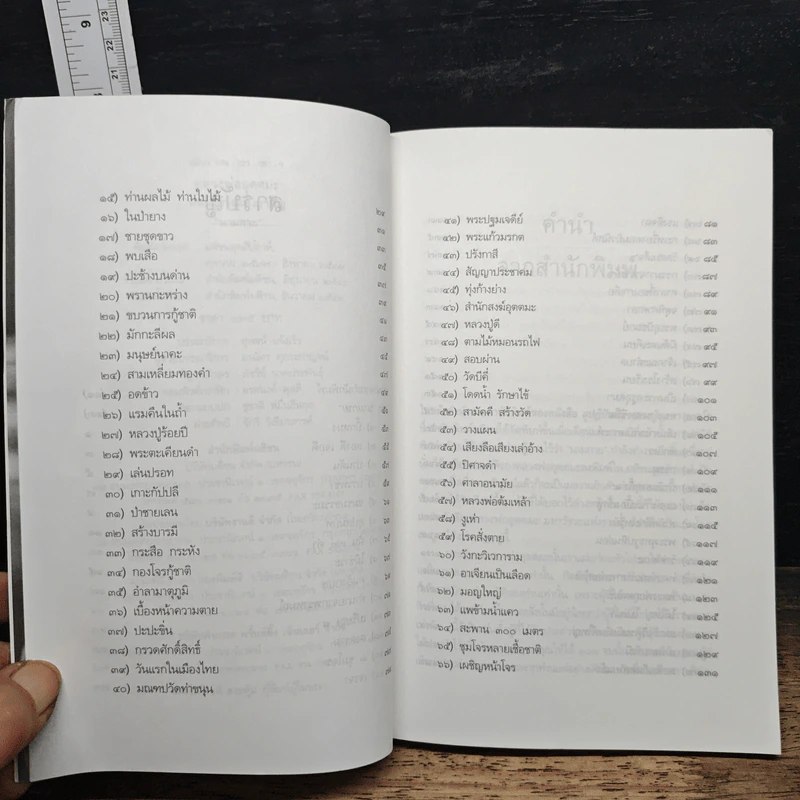 ๑๕) ท่านผลไม้ ท่านใบไม้ ๒๙
๑๖) ในป่ายาง ๓๑
๑๗) ชายชุดขาว ๓๓
๑๘) พบเสือ ๓๕
๑๙) ปะช้างบนด่าน ๓๗
๒๐) พรานกะหร่าง
๒๑) ขบวนการกู้ชาติ
๒๒) มักกะลีผล
๒๓) มนุษย์นาคะ
๒๔) สามเหลี่ยมทองคำ
๒๕) อดข้าว
๒๖) แรมคืนในถ้ำ
๒๗) หลวงปู่ร้อยปี
๒๘) พระตะเคียนดำ
๒๙) เล่นปรอท
๓๐) เกาะกัปปลี
๓๑) ป่าชายเลน
๓๒) สร้างบารมี
๓๓) กระสือ กระหัง
๓๔) กองโจรกู้ชาติ
๓๕) อำลามาตุภูมิ
๓๖) เบื้องหน้าความตาย
๓๗) ปะปะขิ่น
๓๘) กรวดศักดิ์สิทธิ์
๓๙) วันแรกในเมืองไทย
๔๐) มณฑปวัดท่าขนุน
๔๑) พระปฐมเจดีย์ ๘๑
๔๒) พระแก้วมรกต ๘๓
๔๓) ปรังกาสี ๘๕
๔๔) สัญญาประชาคม ๘๗
๔๕) ทุ่งก้างย่าง ๘๙
๔๖) สำนักสงฆ์อุตตมะ ๙๑
๔๗) หลวงปู่ดี ๙๓
๔๘) ตามไม้หมอนรถไฟ ๙๕
๔๙) สอบผ่าน ๙๗
๕๐) วัดบีคี่ ๙๙
๕๑) โดดน้ำ รักษาไข้ ๑๐๑
๕๒) สามัคคี สร้างวัด ๑๐๓
๕๓) วางแผน ๑๐๕
๕๔) เสียงลือเสียงเล่าอ้าง ๑๐๗
๕๕) ปีศาจดำ ๑๐๙
๕๖) ศาลาอนามัย ๑๑๑
๕๗) หลวงพ่อต้มเหล้า ๑๑๓
๕๘) งูเห่า ๑๑๕
๕๙) โรคสั่งตาย ๑๑๗
๖๐) วังกะวิเวการาม ๑๒๑
๖๑) อาเจียนเป็นเลือด ๑๒๓
๖๒) มอญใหญ่ ๑๒๕
๖๓) แพข้ามน้ำแคว ๑๒๗
๖๔) สะพาน ๓๐๐ เมตร ๑๒๙
๖๕) ชุมโจรหลายเชื้อชาติ ๑๓๑
๖๖) เผชิญหน้าโจร